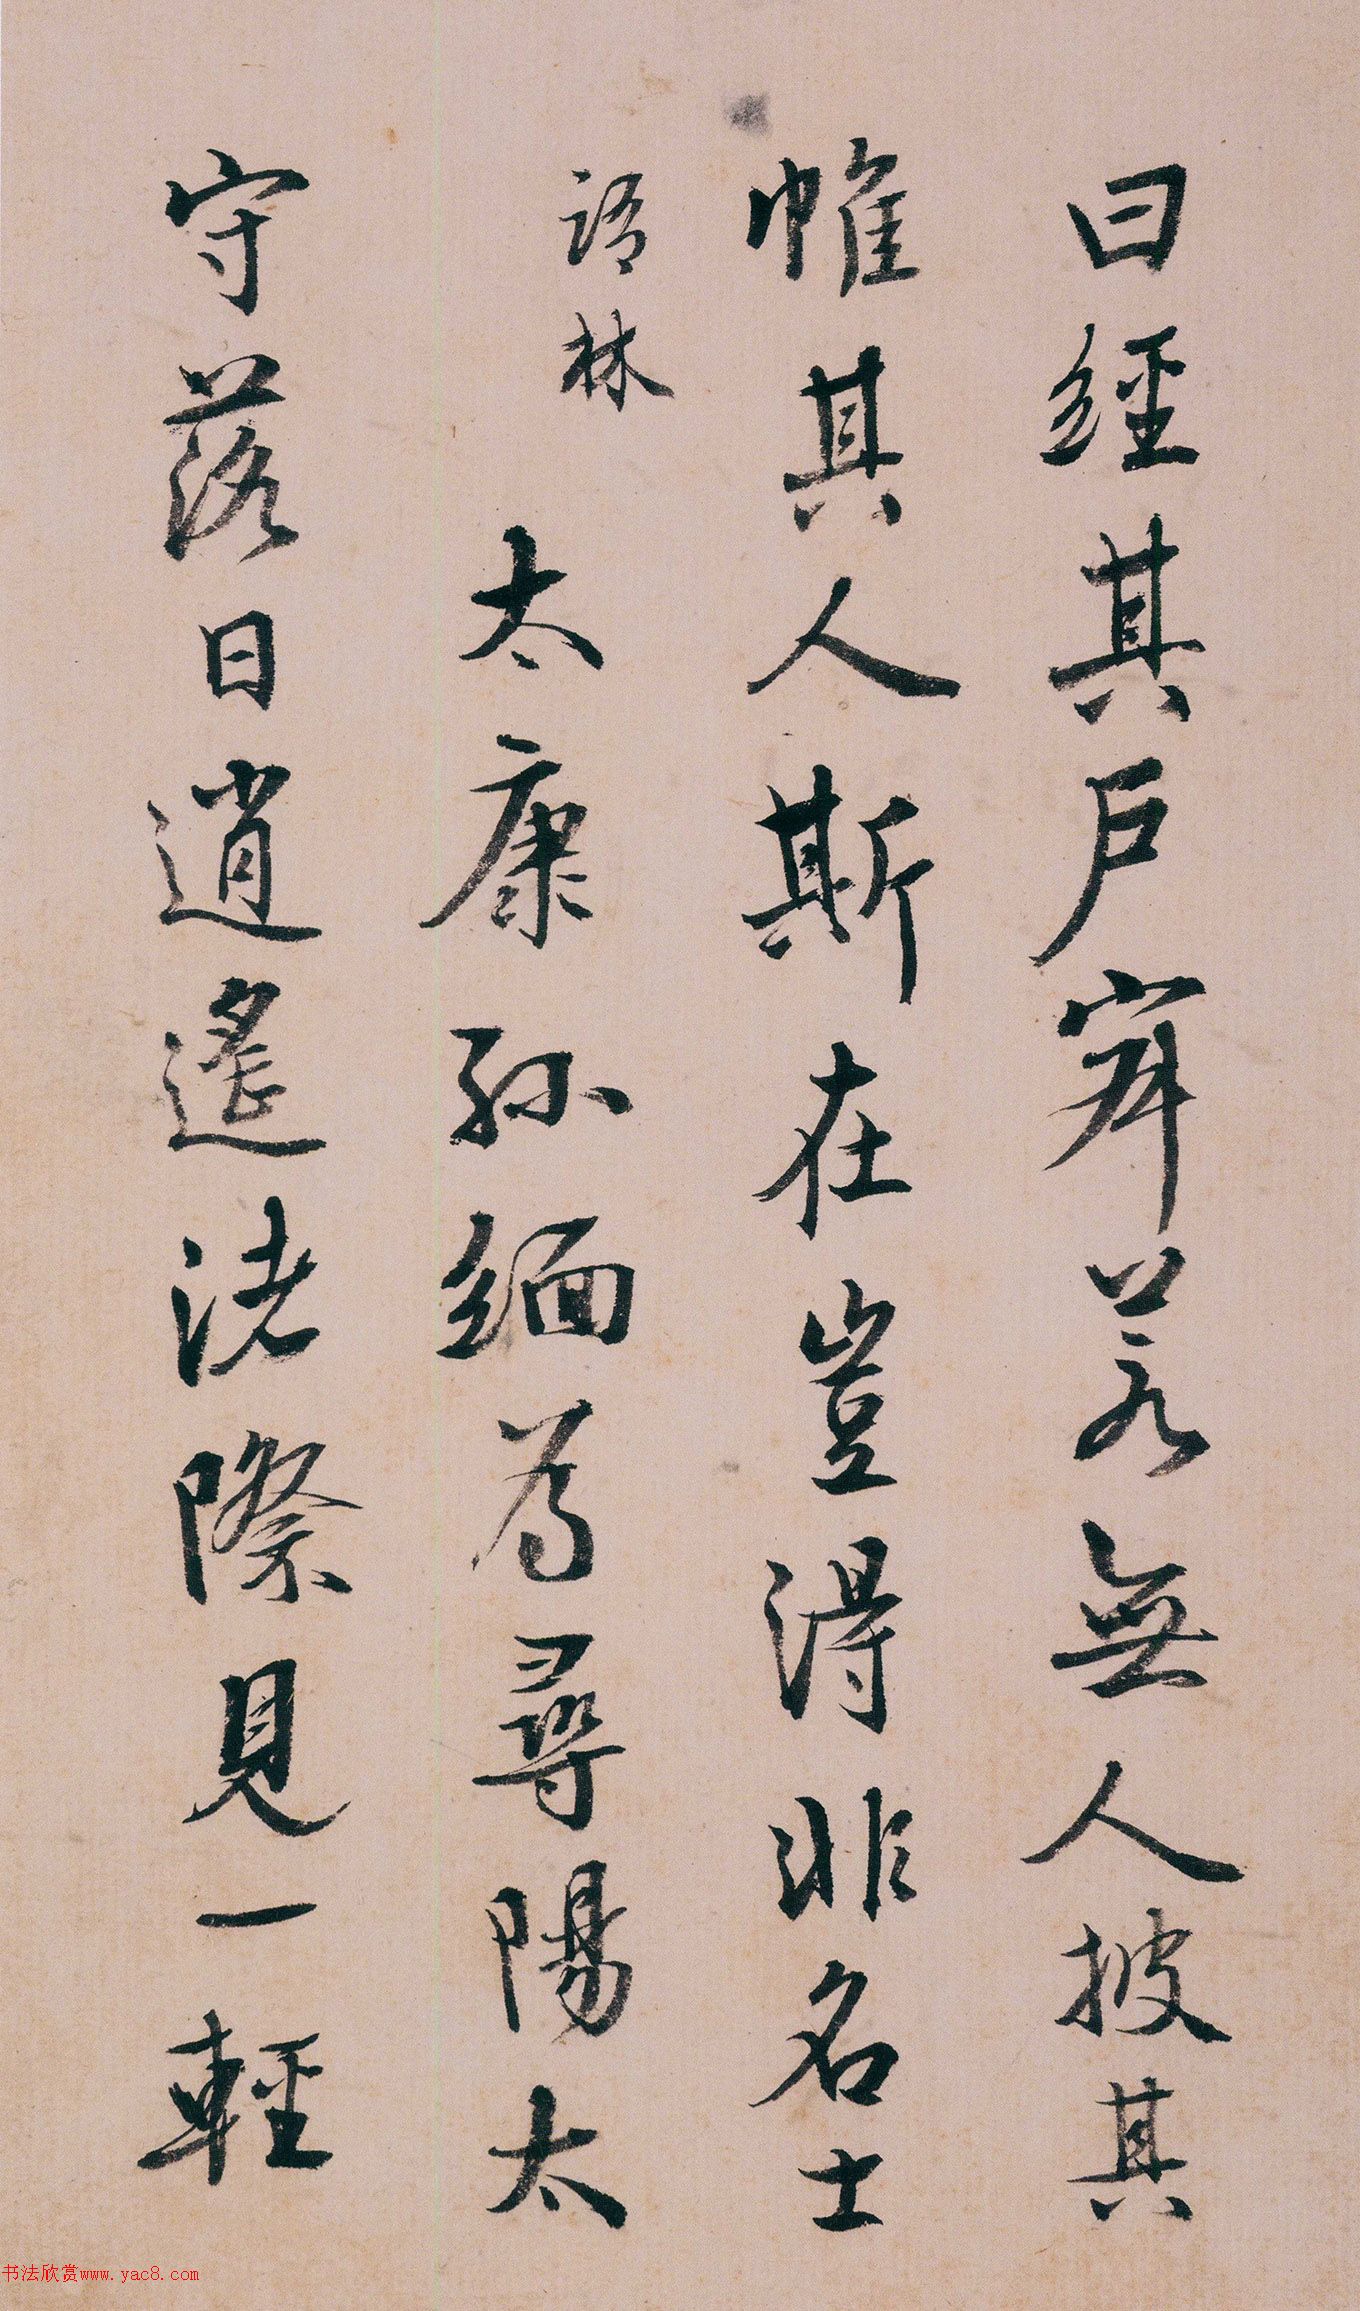 曰經其戶寂若無人披其
帷其人斯在豈得非名士
語林
太康孫緬為尋陽太
守落日逍遙渚際見一輕
书法欣赏www.yac8.com